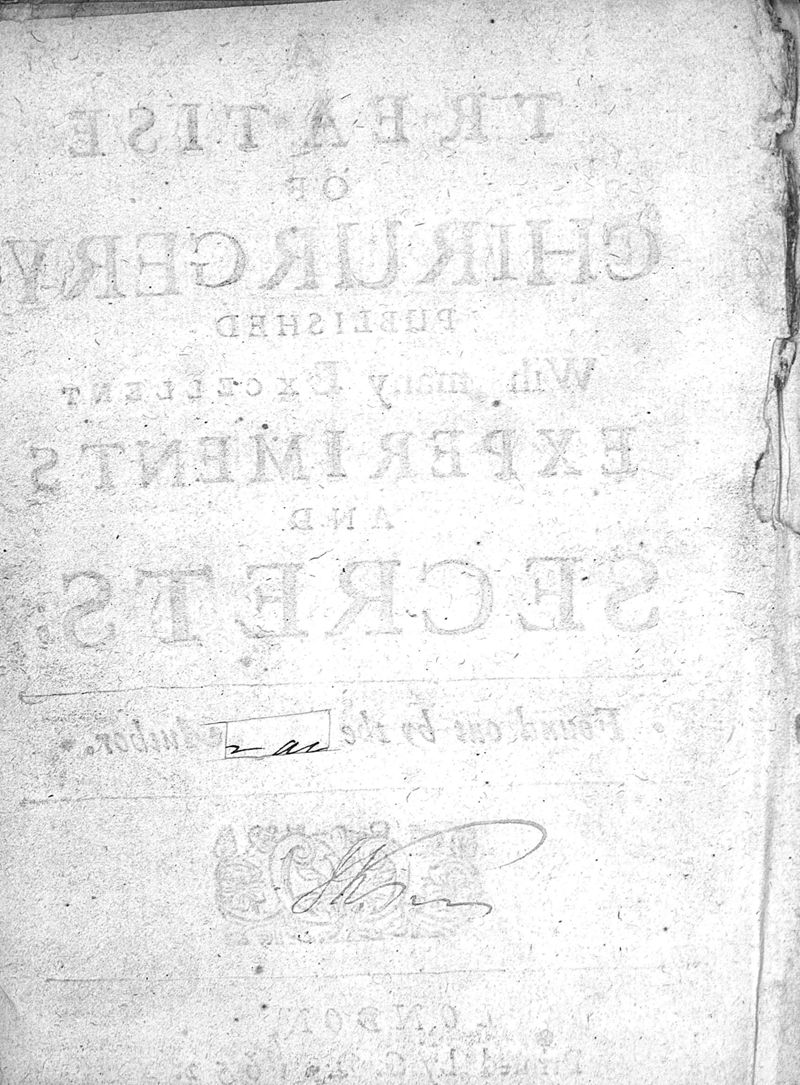 A
TREATISE
OF
CHIRURGERY
PUBLISHED
With many EXCELLENT
EXPERIMENTS
AND
SECRETS:
Found out by the Author.
LONDON,
Printed by